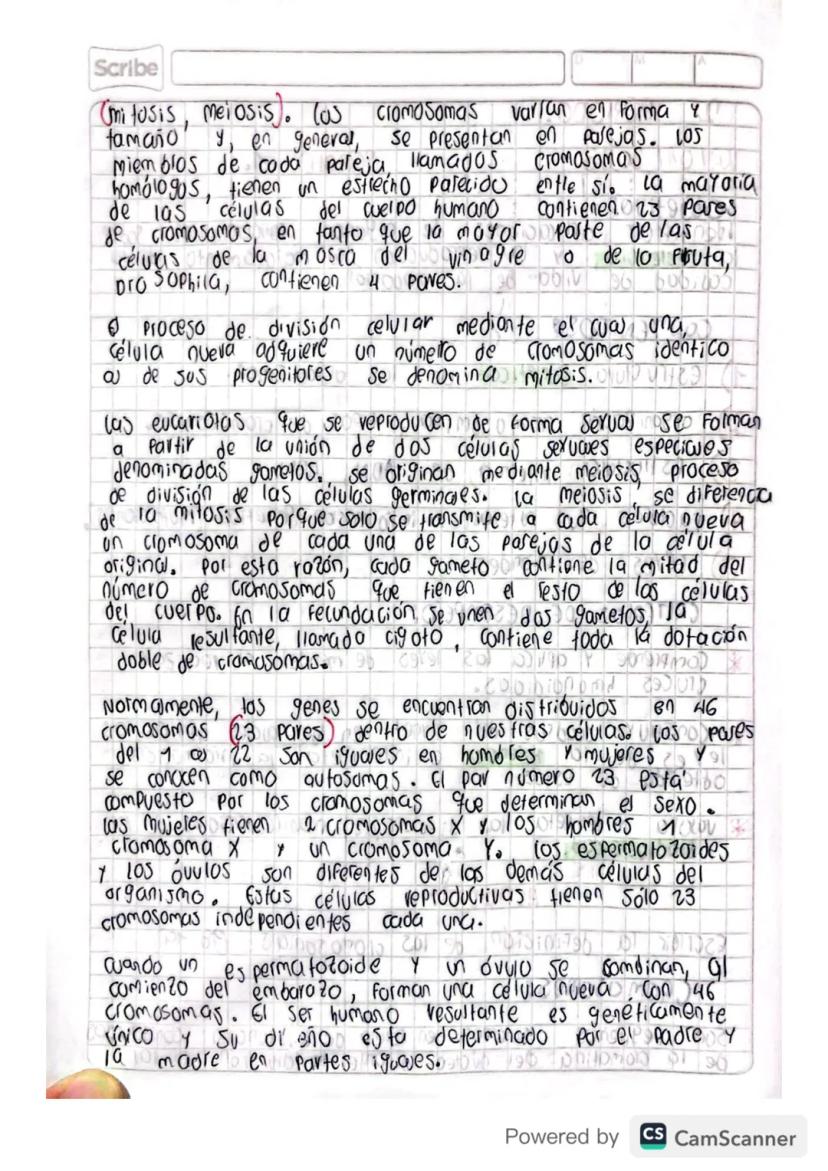 Scribe
(mitosis, meiosis). Los cromosomas varían en forma y
tamaño y, en general, se presentan en parejas. Los
miembros de cada pareja, llamados cromosomas
homólogos, tienen un estrecho parecido entre sí. La mayoría
de las células del cuerpo humano contienen 23 pares
de cromosomas, en tanto que la mayor parte de las
células de la mosca del vinagre o de la fruta,
Drosophila, contienen 4 pares.
El proceso de división celular mediante el cual una
célula nueva adquiere un número de cromosomas idéntico
al de sus progenitores se denomina mitosis.
Las eucariotas que se reproducen de forma sexual se forman
a partir de la unión de dos células sexuales especiales
denominadas gametos. se originan mediante meiosis, proceso
de división de las células germinales. La meiosis se diferencia
de la mitosis porque solo se transmite a cada célula nueva
un cromosoma de cada una de las parejas de la célula
original. Por esta razón, cada gameto contiene la mitad del
número de cromosomas que tienen el resto de las células
del cuerpo. En la fecundación se unen dos gametos, la
célula resultante, llamada cigoto, contiene toda la dotación
doble de cromosomas.
Normalmente, los genes se encuentran distribuidos en 46
cromosomas (23 pares) dentro de nuestras células. Los pares
del 1 al 22 son iguales en hombres y mujeres y
se conocen como autosomas. El par número 23 está
compuesto por los cromosomas que determinan el sexo.
Las mujeres tienen 2 cromosomas X y los hombres 1
cromosoma X y un cromosoma Y. Los espermatozoides
y los óvulos son diferentes de las demás células del
organismo. Estas células reproductivas tienen sólo 23
cromosomas independientes cada una.
Cuando un espermatozoide y un óvulo se combinan, al
comienzo del embarazo, forman una célula nueva con 46
cromosomas. El ser humano resultante es genéticamente
único y su di eño esta determinado por el padre y
la madre en partes iguales.
Powered by CS CamScanner